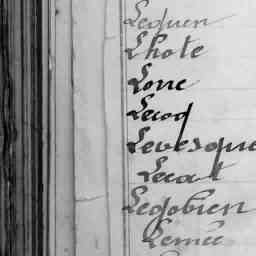 Lequen
Lhote
Lonc
Lecoq
Levesque
Lecat
Legobien
Lemée